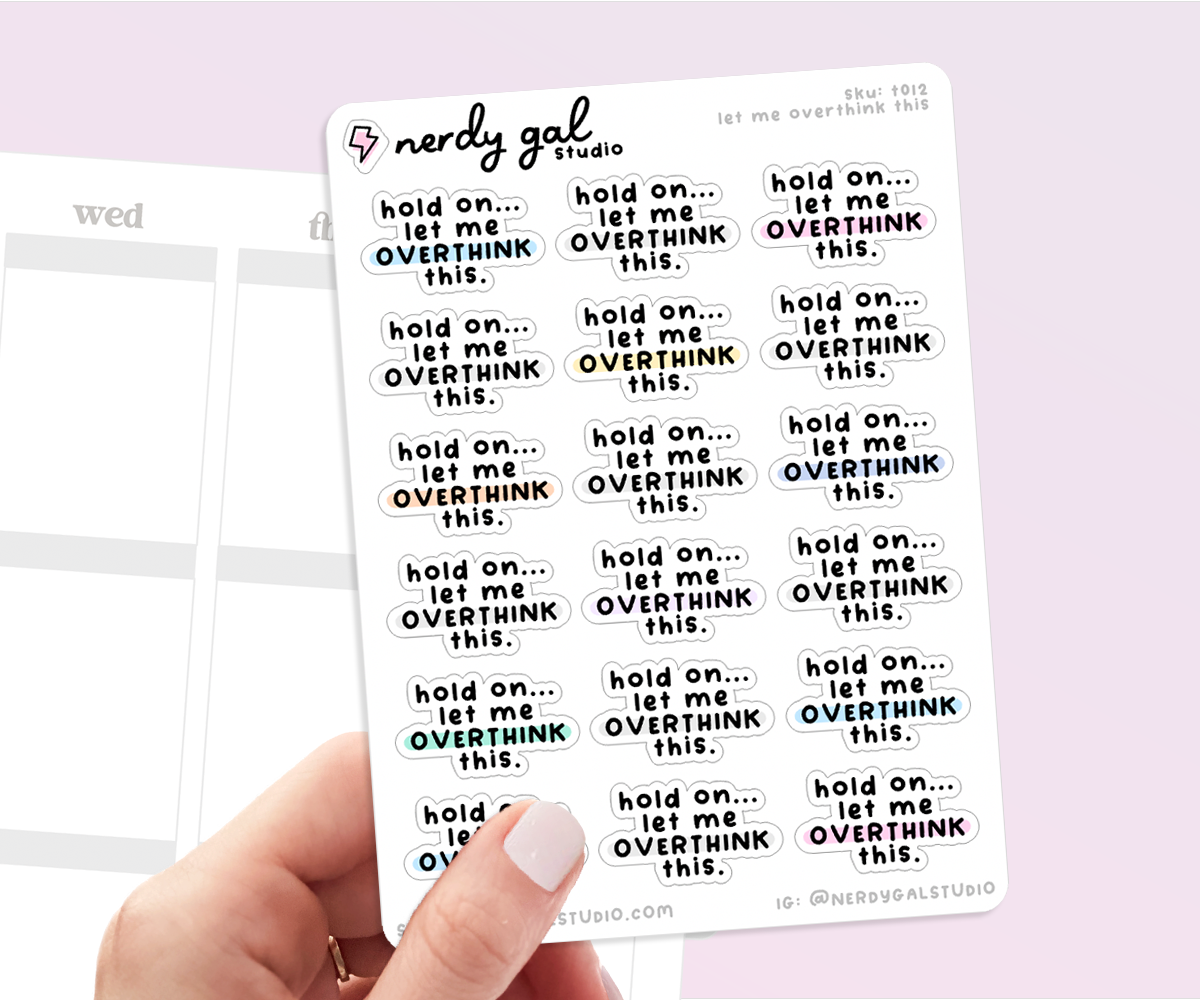 wed
nerdy gal
studio
sku: t012
let me overthink this
hold on...
let me
OVERTHINK
this.
hold on...
let me
OVERTHINK
this.
hold on...
let me
OVERTHINK
this.
hold on...
let me
OVERTHINK
this.
hold on...
let me
OVERTHINK
this.
hold on...
let me
OVERTHINK
this.
hold on...
let me
OVERTHINK
this.
hold on...
let me
OVERTHINK
this.
hold on...
let me
OVERTHINK
this.
hold on...
let me
OVERTHINK
this.
hold on...
let me
OVERTHINK
this.
hold on...
let me
OVERTHINK
this.
hold on...
let me
OVERTHINK
this.
hold on...
let me
OVERTHINK
this.
hold on...
let me
OVERTHINK
this.
hold
hold on...
let me
OVERTHINK
this.
hold on...
let me
OVERTHINK
this.
IG: @NERDYGALSTUDIO